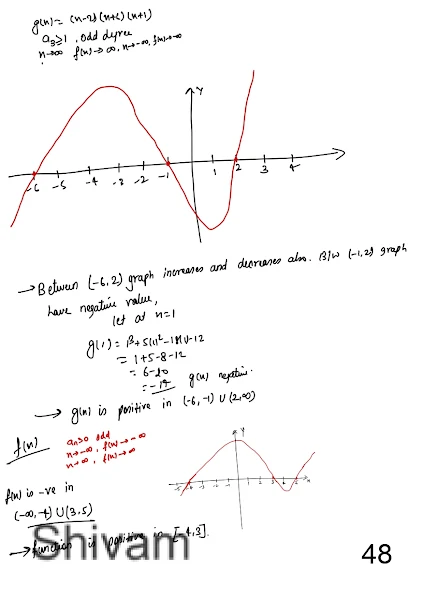 g(n) = (n-2)(n+6)(n+1)
a₃≥1, odd degree
n→∞ f(n)→∞, n→-∞, f(n)→-∞
Y
-6 -5 -4 -3 -2 -1 1 2 3 4
→ Between (-6,2) graph increases and decreases also. B/W (-1,2) graph
have negative value,
let at n=1
= 1+5-8-12
= 6-20
= -14 g(n) negative.
→ g(n) is positive in (-6,-1) ∪ (2,∞)
f(n)
aₙ>0 odd
n→-∞, f(n)→-∞
n→∞, f(n)→∞
Y
f(n) is -ve in
(-∞,-4) ∪ (3,5)
→ function is positive in [-4,3].
Shivam
48